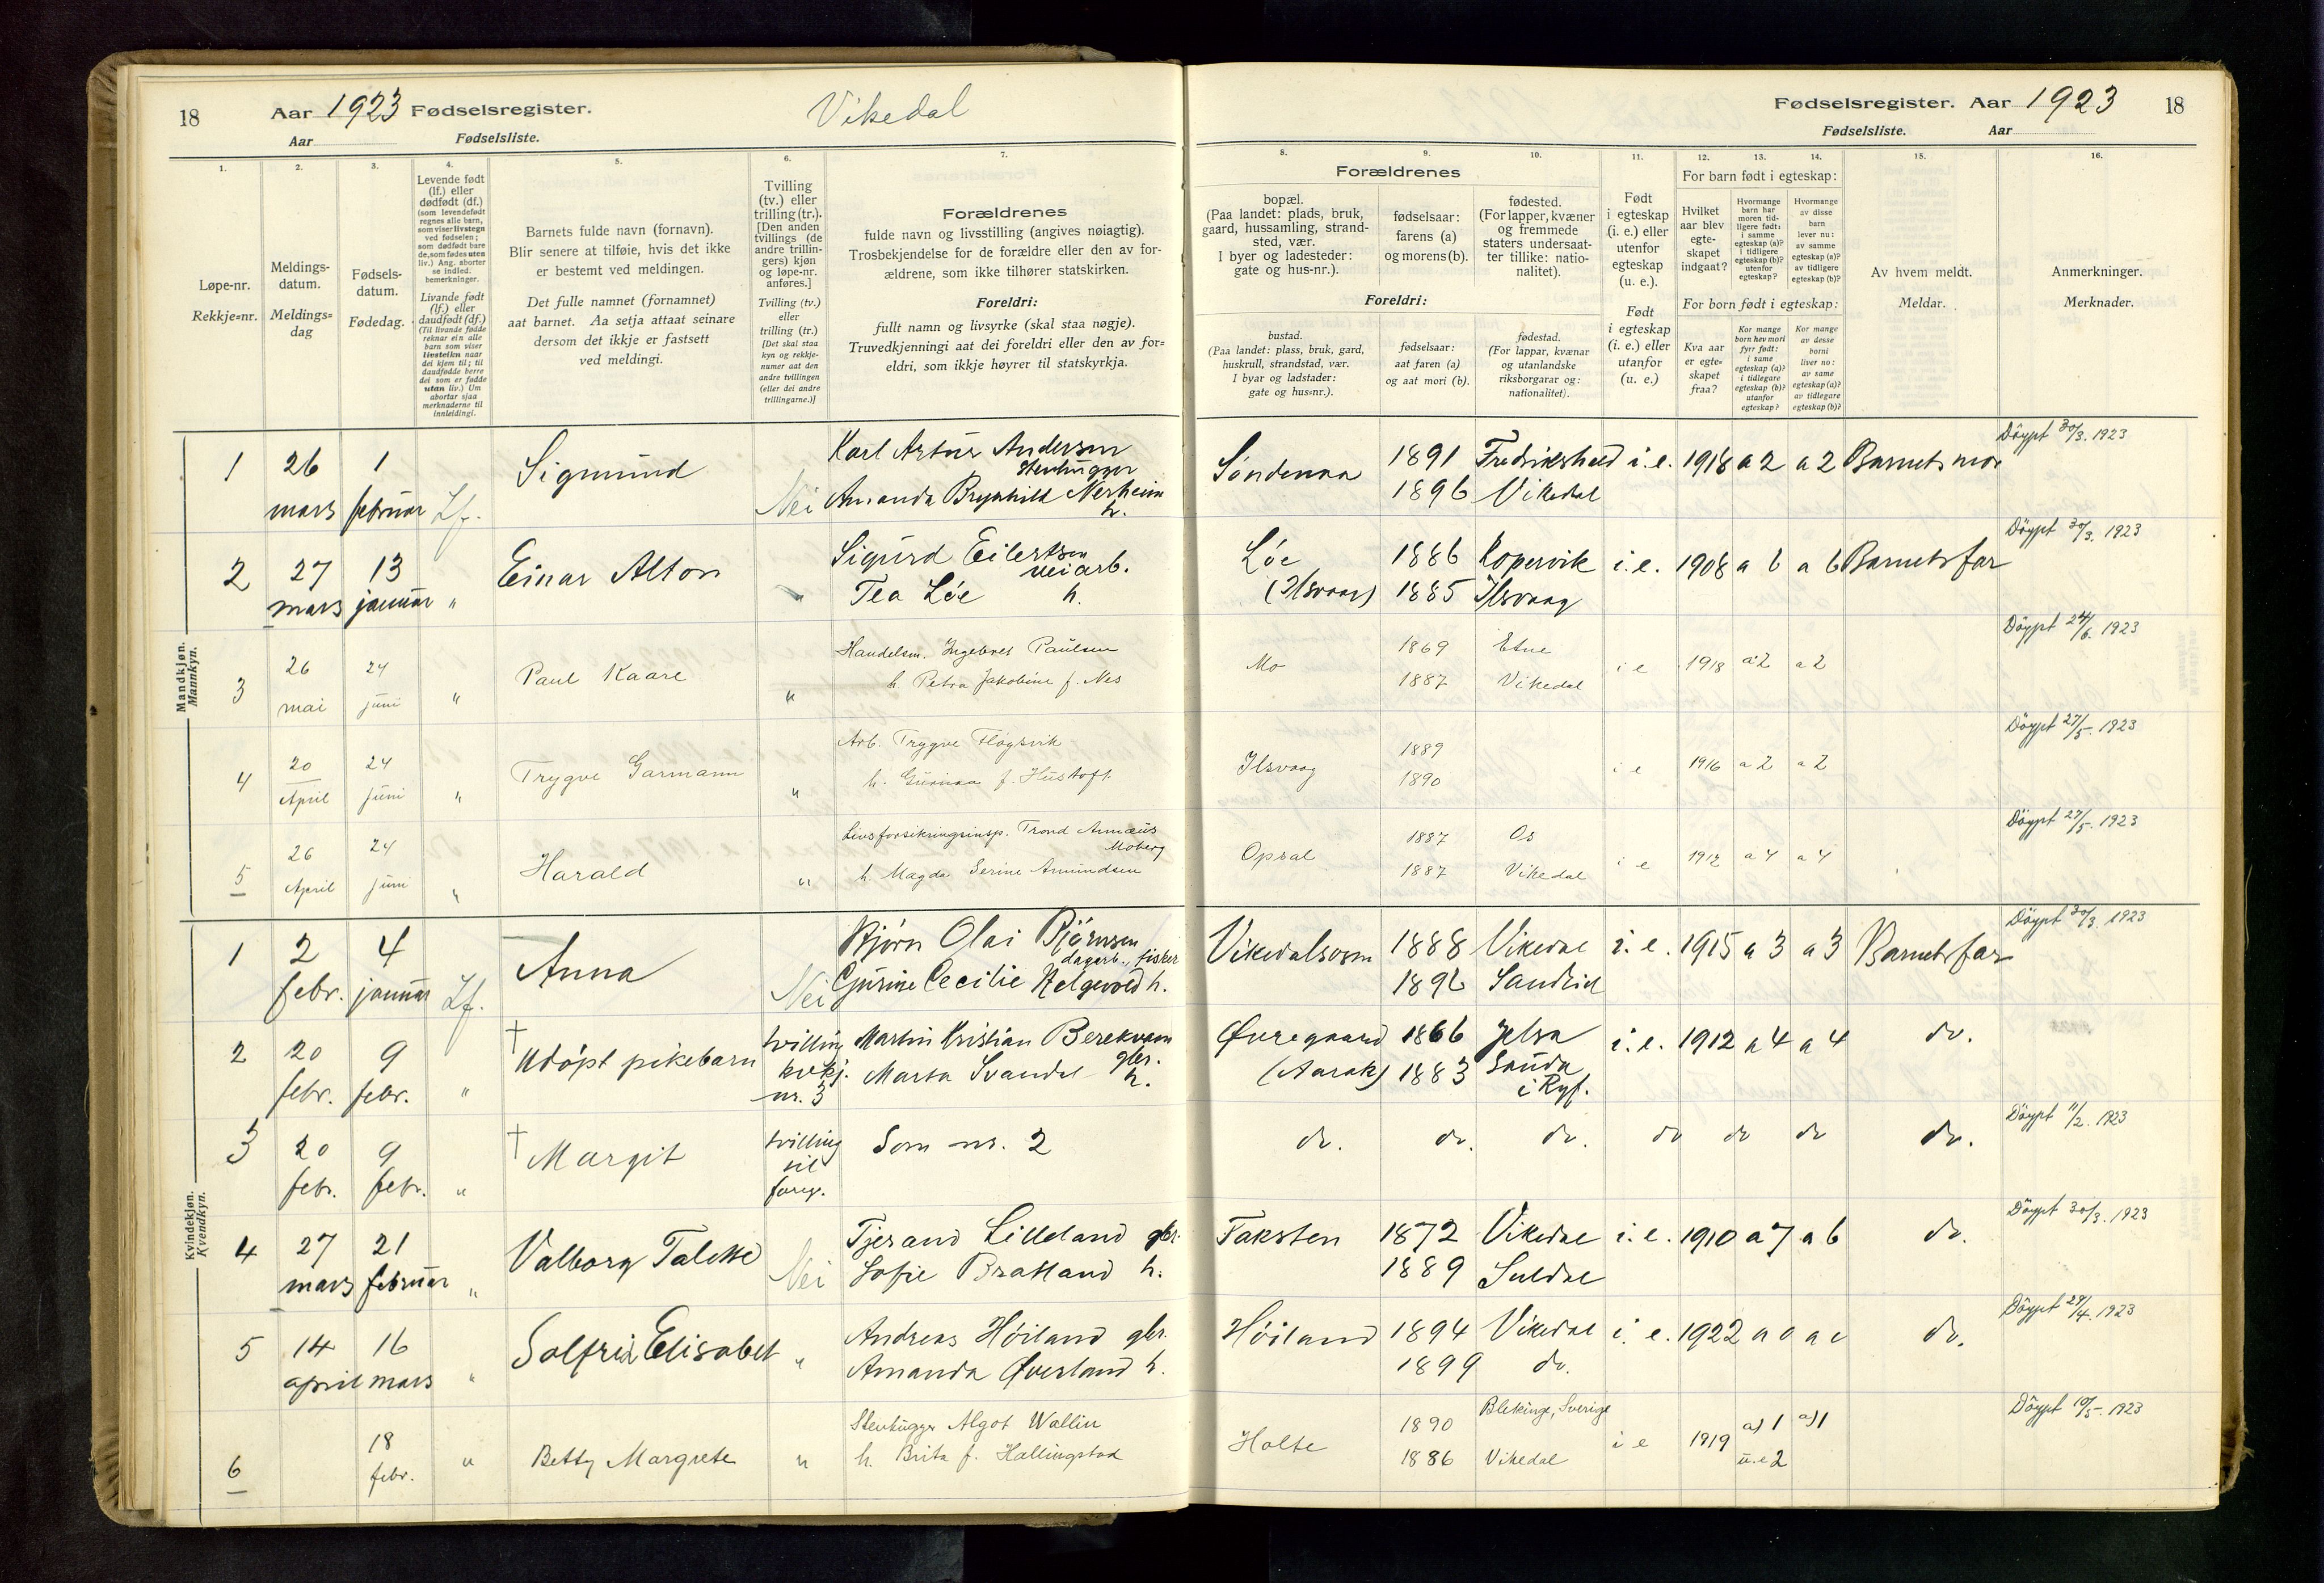 18 Aar 1923 Fødselsregister. Vikedal
Aar Fødselsliste.
Fødselsregister. Aar 1923 18
Fødselsliste. Aar
1. 2. 3. 4. 5. 6. 7.
Løpe-nr.
Rekkje=nr.
Meldings-
datum.
Meldings=
dag
Fødsels-
datum.
Fødedag.
Levende født
(lf.) eller
dødfødt (df.)
(som levendefødt
regnes alle barn,
som viser livstegn
ved fødselen;
som dødfødt bare
de, som fødes uten
liv.) Ang. aborter
se indled.
bemerkninger.
Livande født
(lf.) eller
daudfødt (df.)
(Til livande fødde
reknar ein alle
barn som viser
livsteikn naar
dei kjem til; til
daudfødde berre
dei som er fødde
utan liv.) Um
abortar sjaa
merknaderne til
innleidingi.
Barnets fulde navn (fornavn).
Blir senere at tilføie, hvis det ikke
er bestemt ved meldingen.
Det fulle namnet (fornamnet)
aat barnet. Aa setja attaat seinare
dersom det ikkje er fastsett
ved meldingi.
Tvilling
(tv.) eller
trilling (tr.).
[Den anden
tvillings (de
andre trillin-
gers) kjøn
og løpe-nr.
anføres.]
Tvilling (tv.)
eller
trilling (tr.)
[Det skal staa
kyn og rekkje-
numer aat den
andre tvillingen
(eller dei andre
trillingarne.)]
Forældrenes
fulde navn og livsstilling (angives nøiagtig).
Trosbekjendelse for de forældre eller den av for-
ældrene, som ikke tilhører statskirken.
Foreldri:
fullt namn og livsyrke (skal staa nøgje).
Truvedkjenningi aat dei foreldri eller den av for=
eldri, som ikkje høyrer til statskyrkja.
8. 9. 10. 11. 12. 13. 14. 15. 16.
Forældrenes
bopæl.
(Paa landet: plads, bruk,
gaard, hussamling, strand-
sted, vær.
I byer og ladesteder:
gate og hus-nr.).
fødselsaar:
farens (a)
og morens (b).
fødested.
(For lapper, kvæner
og fremmede
staters undersaat-
ter tillike: natio-
nalitet).
Foreldri:
bustad.
(Paa landet: plass, bruk, gard,
huskrull, strandstad, vær.
I byar og ladstader:
gate og hus=nr.).
fødselsaar:
aat faren (a)
og aat mori (b).
fødestad.
(For lappar, kvænar
og utanlandske
riksborgarar og:
nationalitet).
Født
i egteskap
(i. e.) eller
utenfor
egteskap
(u. e.).
Født
i egteskap
(i. e.) eller
utanfor
(u. e.)
For barn født i egteskap:
Hvilket
aar blev
egte-
skapet
indgaat?
Hvormange
barn har
moren tid-
ligere født:
i samme
egteskap (a)?
i tidligere
egteskap (b)?
utenfor
egteskap?
Hvormange
av disse
barn
lever nu:
av samme
egteskap (a)?
av tidligere
egteskap (b)?
For born født i egteskap:
Kva aar
er egte-
skapet
fraa?
Kor mange
born hev mori
fyrr født:
i same
egteskap (a)?
i tidlegare
egteskap (b)?
utanfor
egteskap?
Kor mange
av desse
borni
liver no:
av same
egteskap (a)?
av tidlegare
egteskap (b)?
Av hvem meldt.
Meldar.
Anmerkninger.
Merknader.
Mandkjøn.
Mannkyn.
1 26 mars 1 februar Lf. Sigmund Nei Karl Artur Andersen Stenhugger
Amanda Brynhild Nerheim h.
Söndenaa 1891 Fredrikshald i. e. 1918 a 2 a 2 Barnets mor Döypt 30/3. 1923
1896 Vikedal
2 27 mars 13 januar " Einar Alton " Sigurd Eilertsen veiarb.
Tea Löe h.
Löe 1886 Kopervik i. e. 1908 a 6 a 6 Barnets far Döypt 30/3. 1923
(Ilsvaag) 1885 Ilsvaag
3 26 mai 24 juni " Paul Kaare " Handelsm. Ingebret Paulsen
h. Petra Jakobine f. Nes
Mo 1869 Etne i e 1918 a 2 a 2 Döypt 24/6. 1923
1887 Vikedal
4 20 April 24 juni " Trygve Garmann " Arb. Trygve Flögsvik
h. Gurina f. Hustoft
Ilsvaag 1889 i e 1916 a 2 a 2 Döypt 27/5. 1923
1890
5 26 April 24 juni " Harald " Livsforsikringsinsp. Trond Annæus
Moberg
h. Magda Serine Amundsen
Opsal 1887 Os i e 1912 a 4 a 4 Döypt 27/5. 1923
1887 Vikedal
Kvindekjøn.
Kvendkyn.
1 2 febr. 4 januar Lf. Anna Nei Bjørn Olai Björnsen
dagarb., fisker
Gurine Cecilie Helgevold h.
Vikedalsosen 1888 Vikedal i. e. 1915 a 3 a 3 Barnets far Döypt 30/3. 1923
1896 Sandeid
2 20 febr. 9 febr. " † Udöpt pikebarn tvilling kvkj. nr. 3 Martin Kristian Berekvam gbr.
Marta Svandal h.
Øvregaard 1866 Jelsa i. e. 1912 a 4 a 4 do.
(Aarak) 1883 Sauda i Ryf.
3 20 febr. 9 febr. " † Margit tvilling til foreg. Som nr. 2
do. do. do. do do do do. Döypt 11/2. 1923
4 27 mars 21 februar " Valborg Talette Nei Tjerand Lilleland gbr.
Sofie Bratland h.
Faksten 1872 Vikedal i. e. 1910 a 7 a 6 do. Döypt 30/3. 1923
1889 Suldal
5 14 april 16 mars " Solfrid Elisabet " Andreas Höiland gbr.
Amanda Øverland h.
Höiland 1894 Vikedal i. e. 1922 a 0 a 0 do. Döypt 29/4. 1923
1899 do.
6 18 febr. " Betty Margrete " Stenhugger Algot Wallin
h. Brita f. Hallingstad
Holte 1890 Blekinge, Sverige i e 1919 a) 1 a) 1 Döypt 10/5. 1923
1886 Vikedal u. e 2